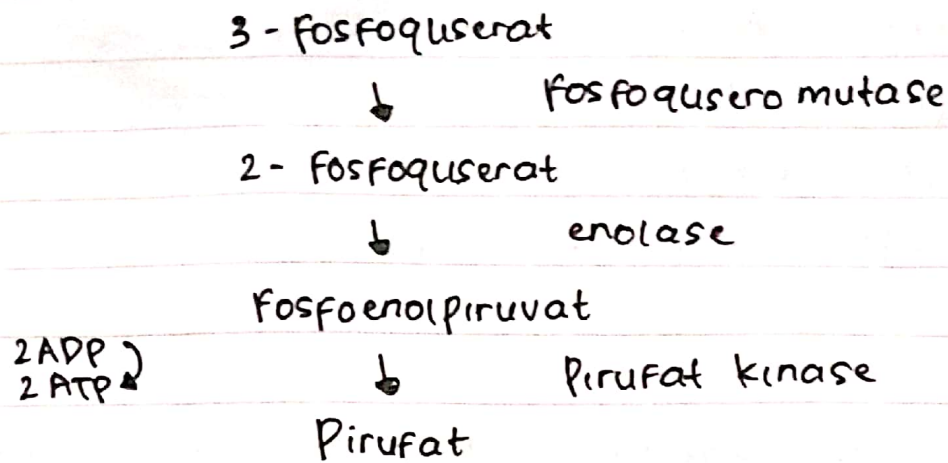 3 - Fosfogliserat
Fosfoglisero mutase
2 - Fosfogliserat
enolase
Fosfoenolpiruvat
2 ADP
2 ATP
Pirufat kinase
Pirufat